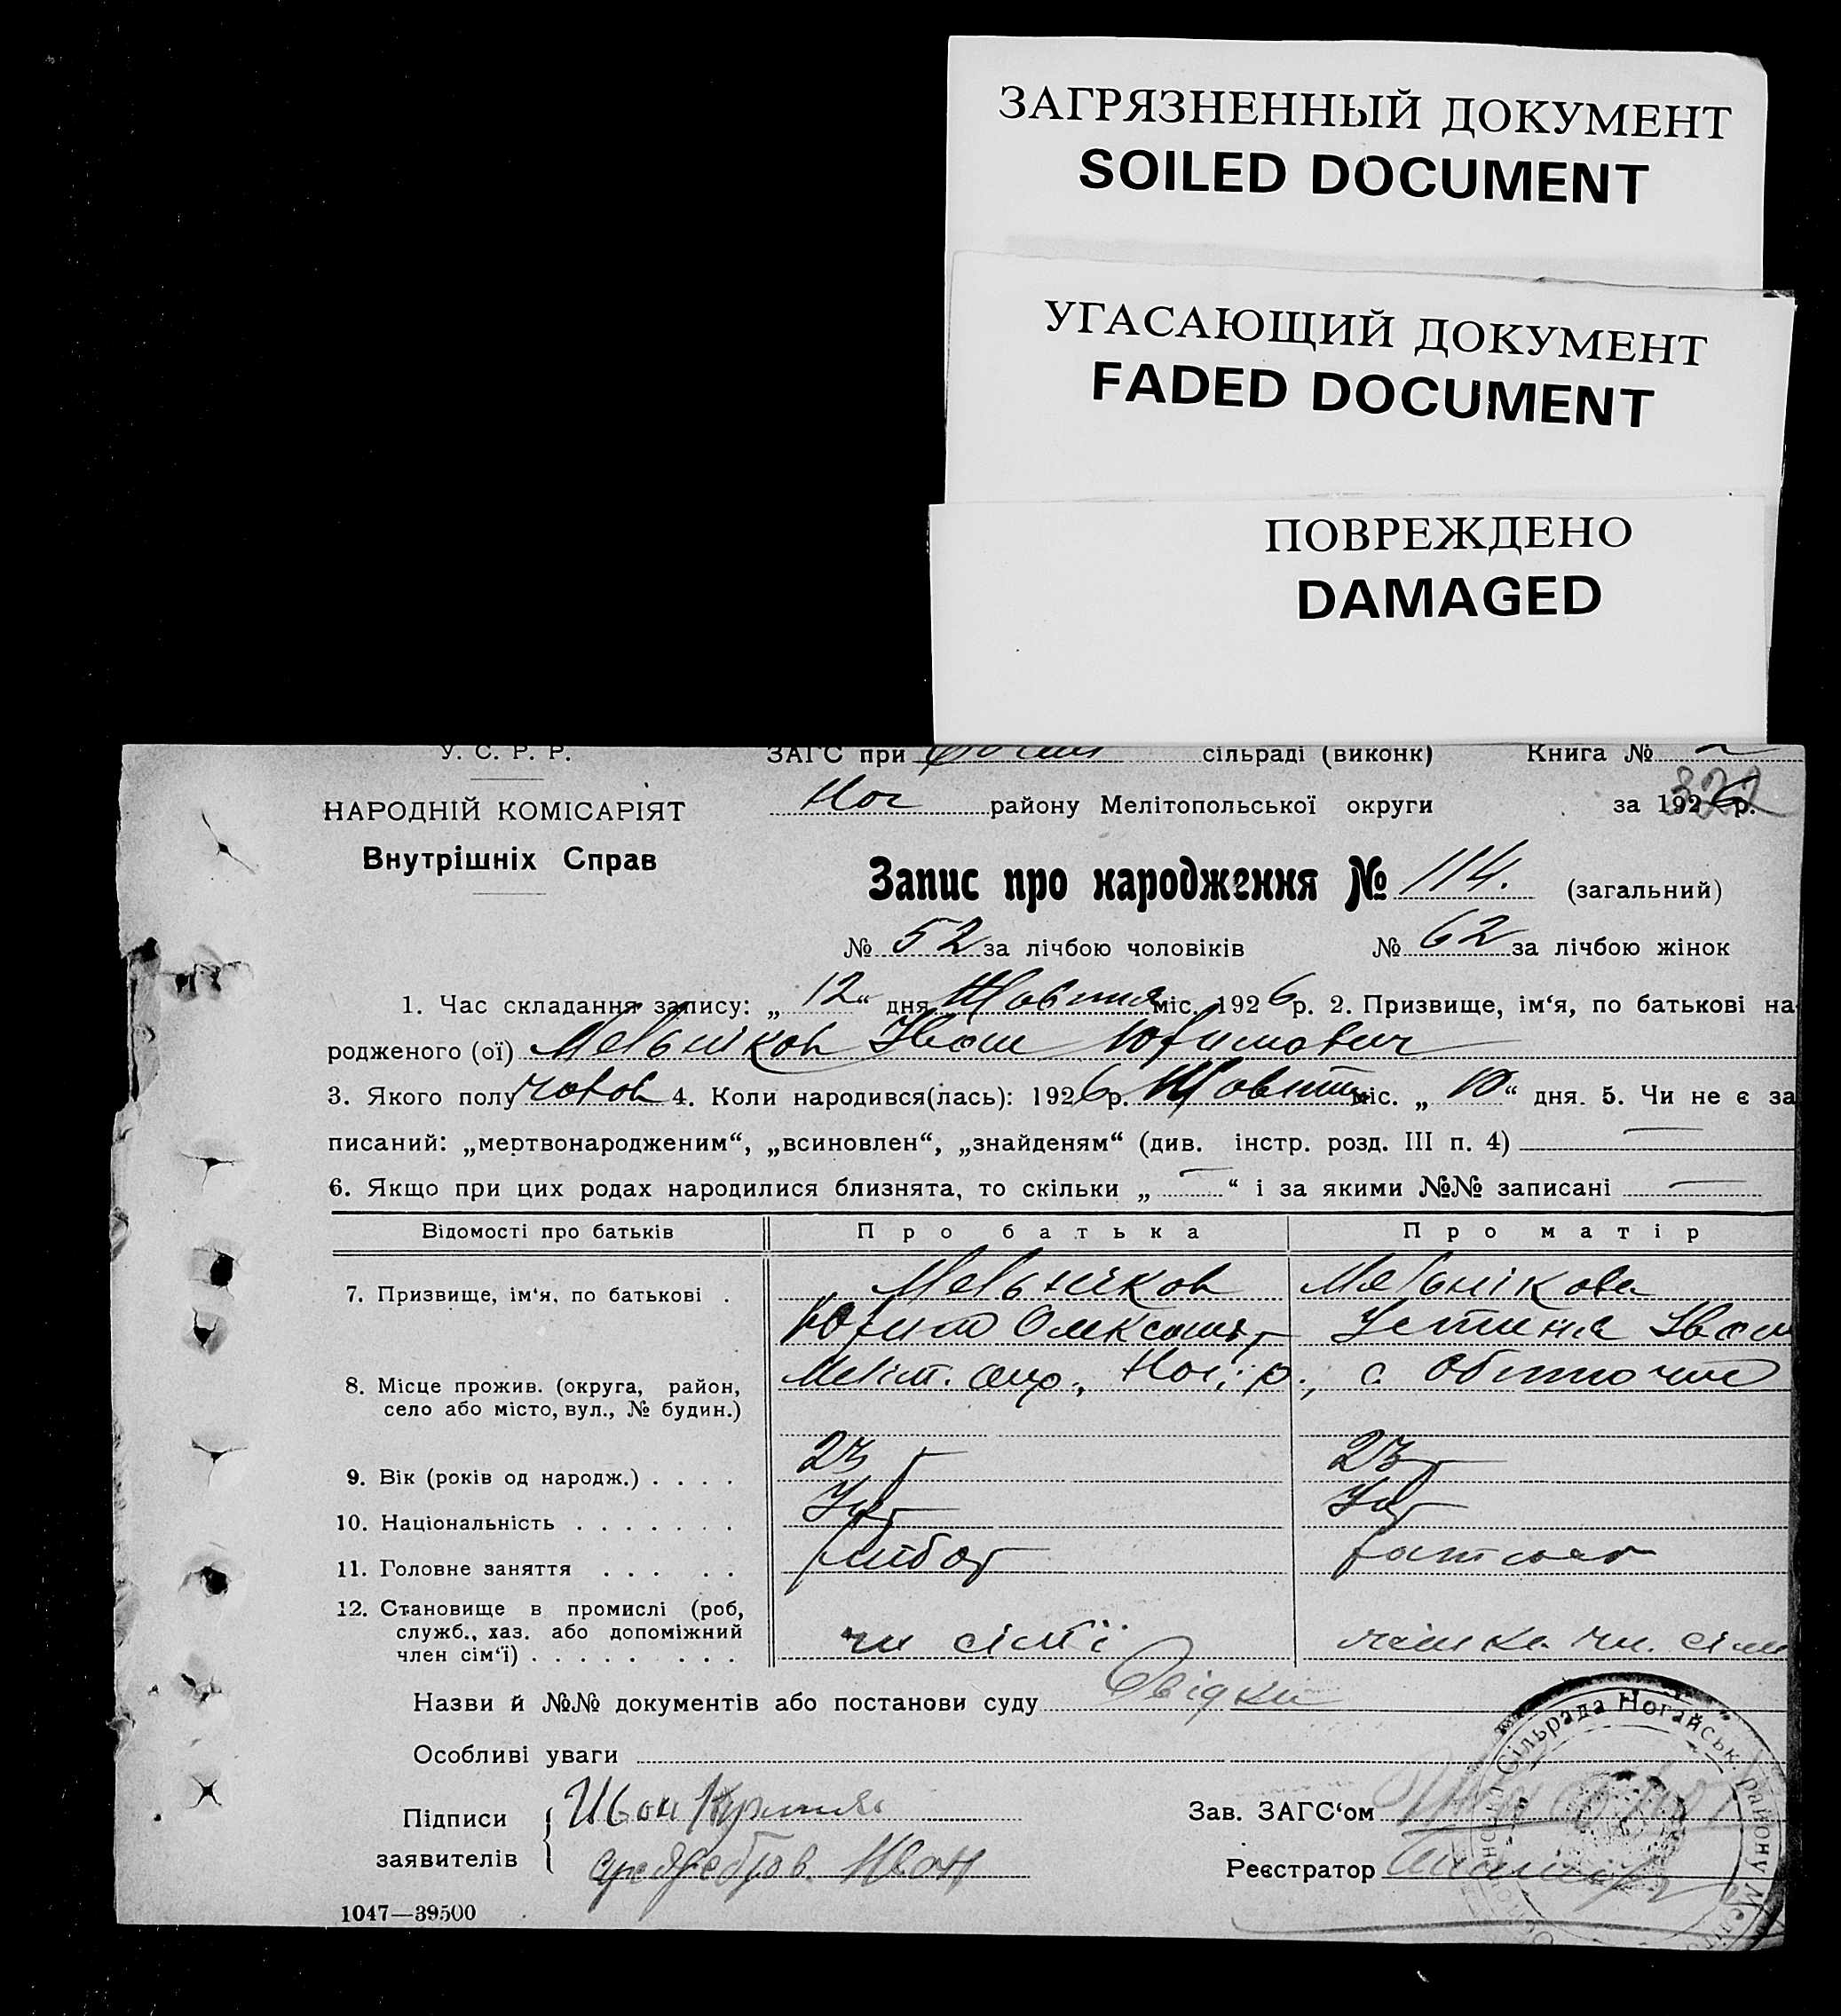 ЗАГРЯЗНЕННЫЙ ДОКУМЕНТ
SOILED DOCUMENT
УГАСАЮЩИЙ ДОКУМЕНТ
FADED DOCUMENT
ПОВРЕЖДЕНО
DAMAGED
У. С. Р. Р. ЗАГС при сільраді (виконк) Книга №
НАРОДНІЙ КОМІСАРІЯТ Ног району Мелітопольської округи за 1926 р.
Внутрішніх Справ
Запис про народження № 114. (загальний)
№ 52 за лічбою чоловіків № 62 за лічбою жінок
1. Час складання запису: „ 12 “ дня Жовтня міс. 1926 р. 2. Призвище, ім‘я, по батькові на-
родженого (ої) Мельніков Іван Юхимович
3. Якого полу чолов 4. Коли народився(лась): 1926 р. Жовтня міс. „ 10 “ дня. 5. Чи не є за
писаний: „мертвонародженим“, „всиновлен“, „знайденям“ (див. інстр. розд. III п. 4) —
6. Якщо при цих родах народилися близнята, то скільки „ — “ і за якими №№ записані —
Відомості про батьків Про батька Про матір
7. Призвище, ім‘я, по батькові . Мельніков Мельнікова
Юхим Устина Іван
8. Місце прожив. (округа, район, Меліт. окр., Ног. р., с.
село або місто, вул., № будин.)
9. Вік (років од народж.) . . . . 23 23
10. Національність . . . . . . . Укр Укр
11. Головне заняття . . . . . хлібор
12. Становище в промислі (роб,
служб., хаз. або допоміжний чл сімї чл. сім
член сім‘ї) . . . . . . . . .
Назви й №№ документів або постанови суду Свідки
Особливі уваги
Підписи Иван
Зав. ЗАГС‘ом
заявителів Иван
Реєстратор
Сільрада Ногайськ. району
1047—39500